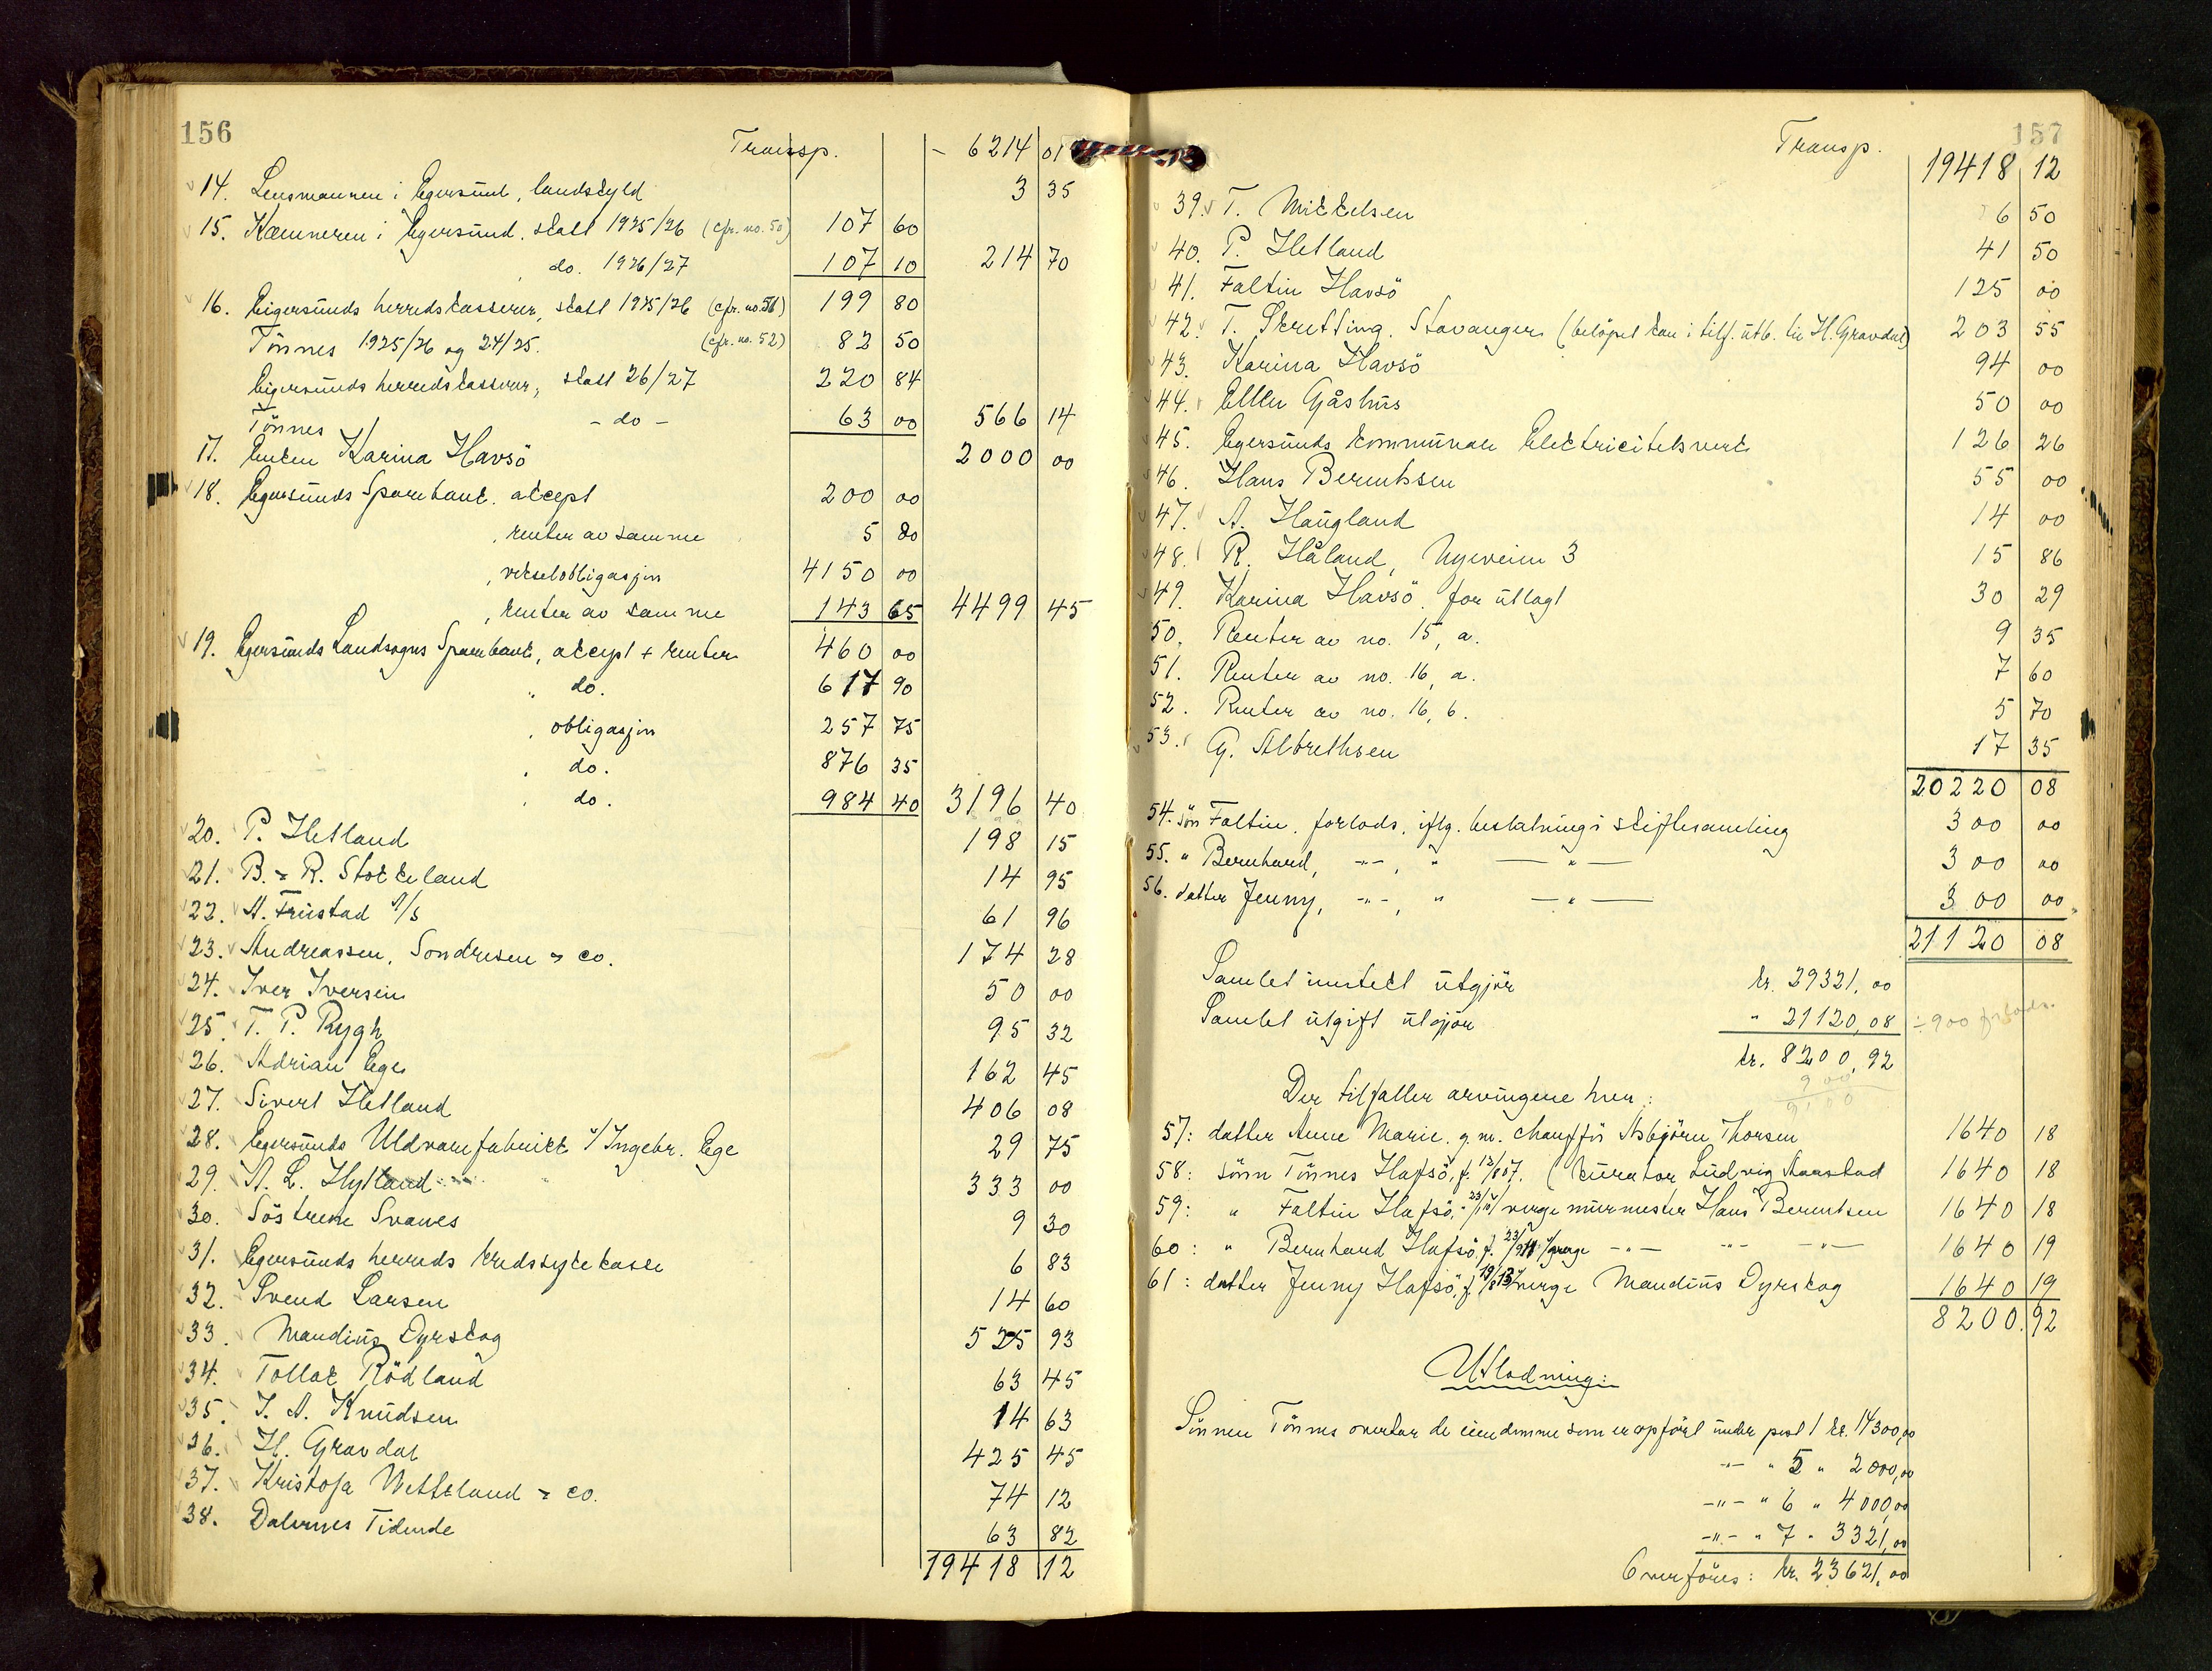 156
Transp. - 6214 01
14. Lensmannen i Egersund, landskyld 3 35
15. Kæmneren i Egersund, skatt 1925/26 (cfr. no. 50) 107 60
do. 1926/27 107 10 214 70
16. Eigersunds herredskasserer, skatt 1925/26 (cfr. no. 51) 199 80
Tönnes 1925/26 og 24/25. (cfr. no. 52) 82 50
Eigersunds herredskasserer, skatt 26/27 220 84
Tönnes - do - 63 00 566 14
17. Enken Karina Havsö 2000 00
18. Egersunds Sparebank, aksept 200 00
, renter av samme 5 80
, vekselobligasjon 4150 00
, renter av samme 143 65 4499 45
19. Egersunds Landsogns Sparebank, aksept + renter 460 00
" do. 617 90
, obligasjon 257 75
, do. 876 35
, do. 984 40 3196 40
20. P. Hetland 198 15
21. B. & R. Stokkeland 14 95
22. A. Frustad A/S 61 96
23. Andreassen, Sondresen & co. 174 28
24. Iver Iversen 50 00
25. T. P. Rygh 95 32
26. Adrian Ege 162 45
27. Sivert Hetland 406 08
28. Egersunds Uldvarefabrikk v/ Ingebr. Ege 29 75
29. A. L. Hylland 333 00
30. Söstrene Svanes 9 30
31. Egersunds herreds kredssykekasse 6 83
32. Svend Larsen 14 60
33. Maudius Dyrskog 525 93
34. Tollak Rödland 63 45
35. J. A. Knudsen 14 63
36. H. Gravdal 425 45
37. Kristofa Wetteland & co. 74 12
38. Dalernes Tidende 63 82
19418 12
157
Transp. 19418 12
39. T. Mikkelsen 6 50
40. P. Hetland 41 50
41. Faltin Havsö 125 00
42. T. Skretting, Stavanger (belöpet kan i tilf. utb. til H. Gravdal) 203 55
43. Karina Havsö 94 00
44. Ellen Gåshus 50 00
45. Egersunds kommunale Elektricitetsverk 126 26
46. Hans Berentsen 55 00
47. A. Haugland 14 00
48. R. Håland, Nyeveien 3 15 86
49. Karina Havsö, for utlagt 30 29
50. Renter av no. 15, a. 9 35
51. Renter av no. 16, a. 7 60
52. Renter av no. 16, b. 5 70
53. G. Albrethsen 17 35
20220 08
54. sön Faltin, forlods, iflg. beslutning i skiftesamling 300 00
55. " Bernhard, -"-, " —"— 300 00
56. datter Jenny, -"-, " —"— 300 00
21120 08
Samlet inntekt utgjör kr. 29321,00
Samlet utgift utgjör " 21120,08 ÷ 900 forlods.
kr. 8200,92
900
9100
Der tilfaller arvingene hver:
57: datter Anne Marie, g. m. chaufför Asbjörn Thorsen 1640 18
58: sönn Tönnes Hafsö, f. 12/8 07. (kurator Ludvig Aarstad 1640 18
59: " Faltin Hafsö, verge murmester Hans Berentsen 1640 18
60: " Bernhard Hafsö, f. 23/9 11 v/verge -"- -"- -"- 1640 19
61: datter Jenny Hafsö, f. 19/8 13 v/verge Maudius Dyrskog 1640 19
8200.92
Utlodning:
Sönnen Tönnes overtar de eiendomme som er opfört under post 1 kr. 14300,00
-"- " 5 " 2000,00
-"- " 6 " 4000,00
-"- " 7 " 3321,00
Overföres: kr. 23621,00